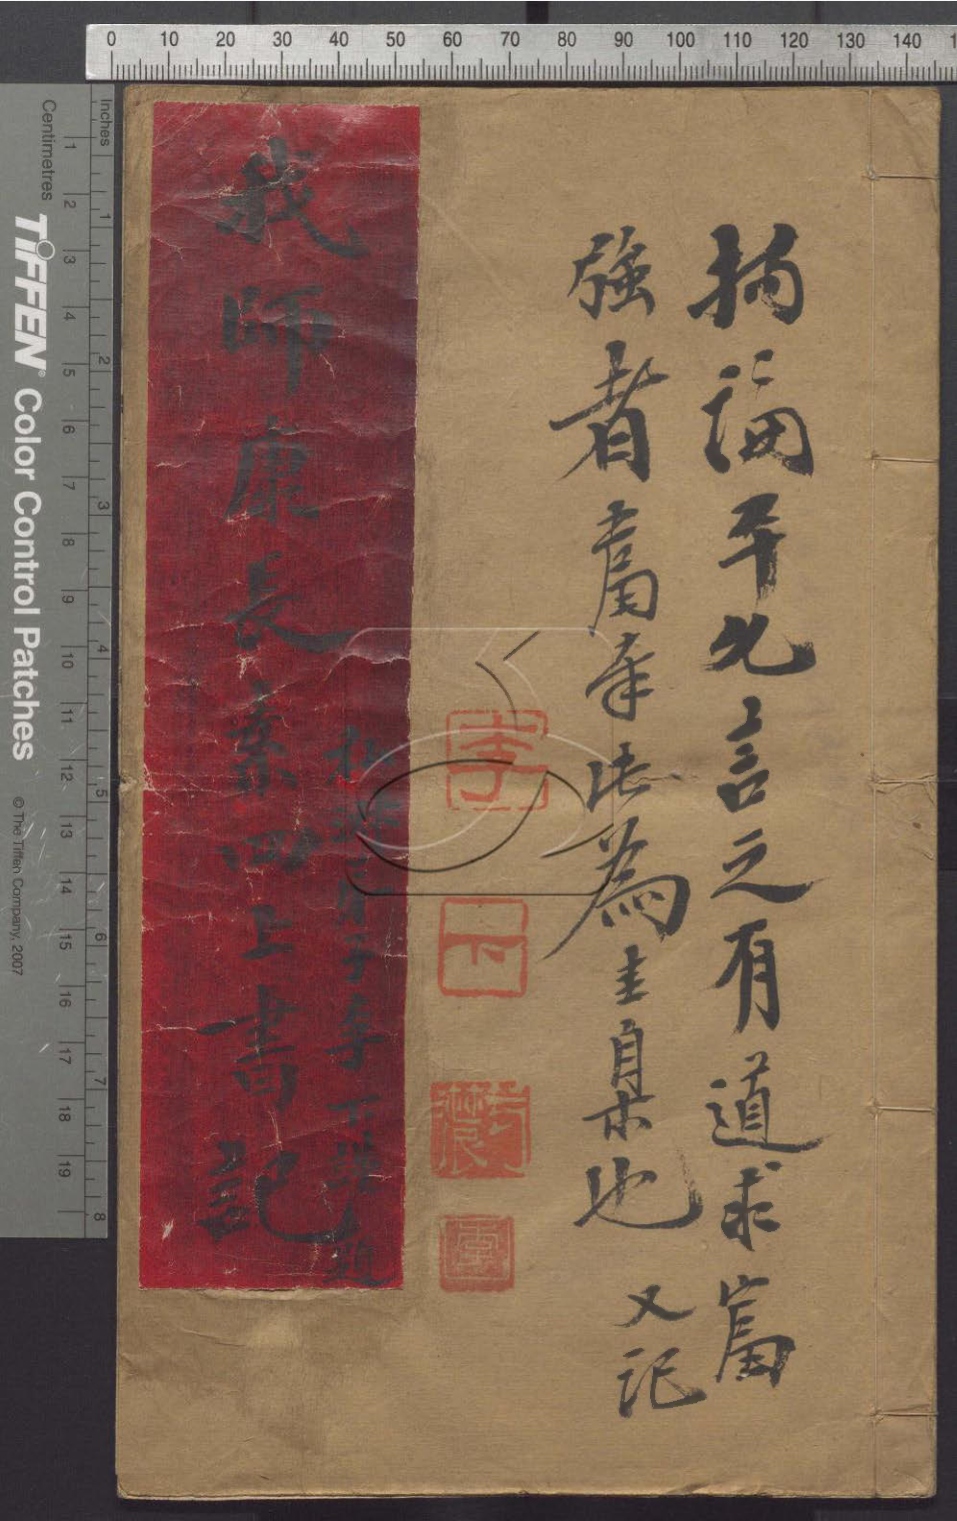 0 10 20 30 40 50 60 70 80 90 100 110 120 130 140
論平允言之有道求富
強者當奉此為圭臬也 又記
李
下
我師康長素四上書記
弟子李下 題
Inches 1 2 3 4 5 6 7 8
Centimetres 1 2 3 4 5 6 7 8 9 10 11 12 13 14 15 16 17 18 19
TIFFEN® Color Control Patches © The Tiffen Company, 2007